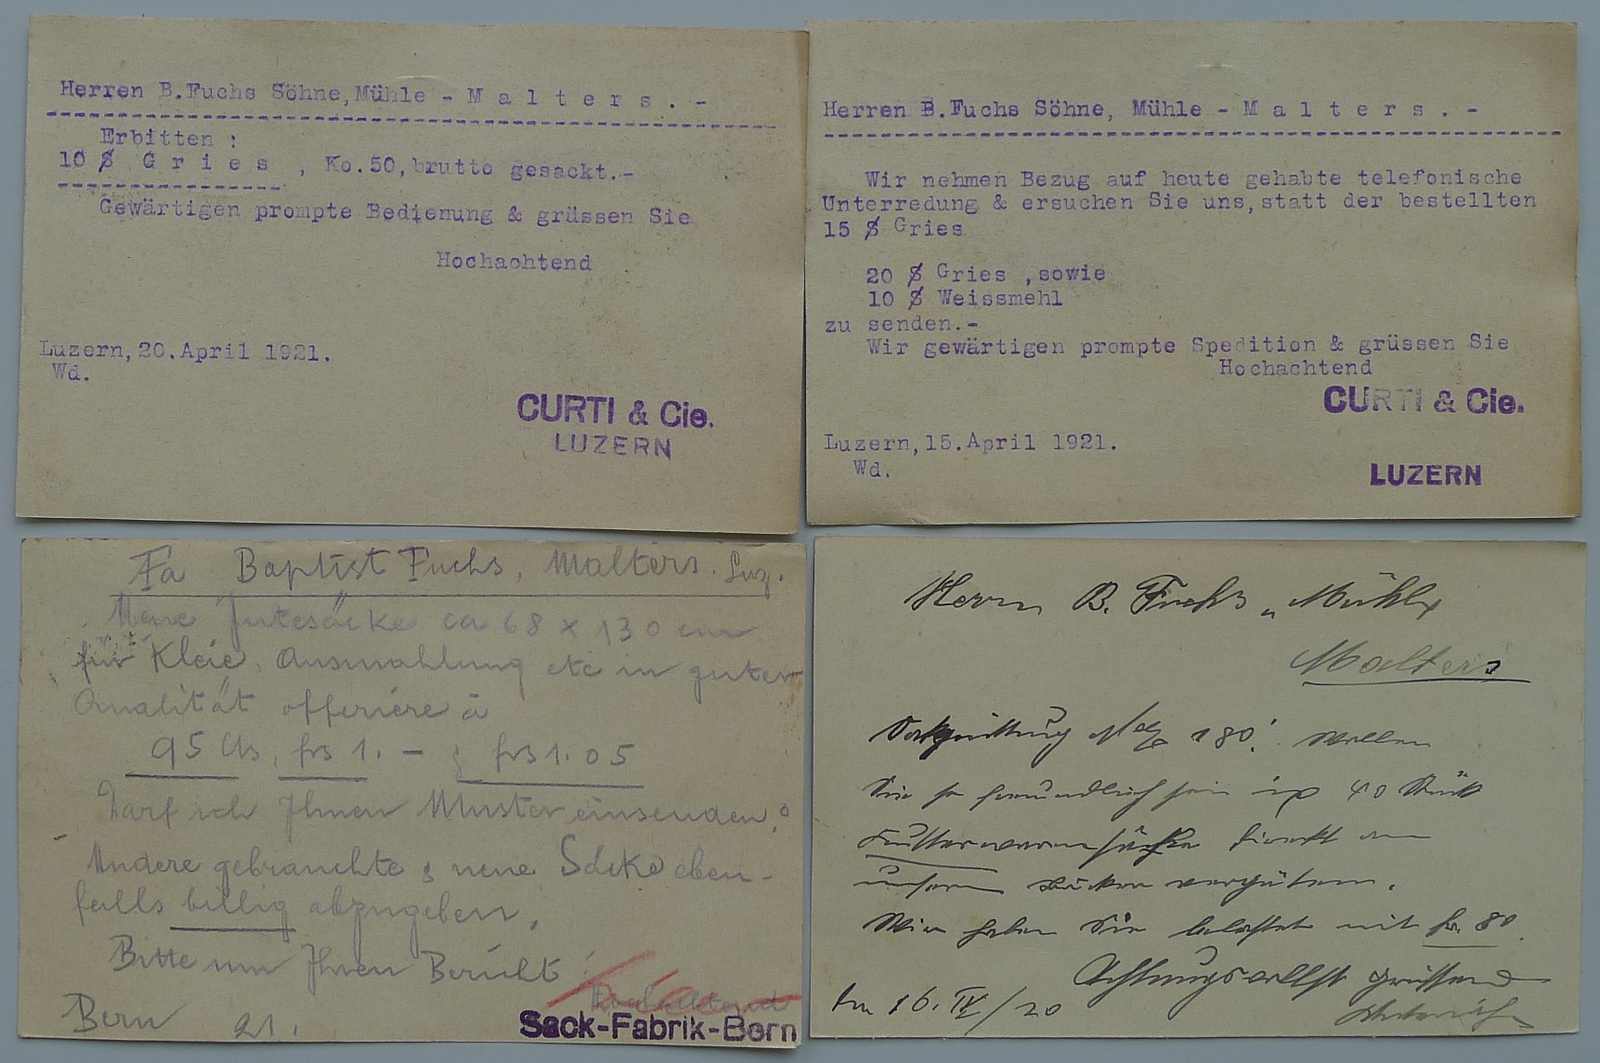 Herren B.Fuchs Söhne, Mühle - M a l t e r s . -
Erbitten :
10 $ G r i e s , Ko.50, brutto gesackt.-
Gewärtigen prompte Bedienung & grüssen Sie
Hochachtend
Luzern, 20.April 1921.
Wd.
CURTI & Cie.
LUZERN
Herren B.Fuchs Söhne, Mühle - M a l t e r s . -
Wir nehmen Bezug auf heute gehabte telefonische
Unterredung & ersuchen Sie uns, statt der bestellten
15 $ Gries
20 $ Gries , sowie
10 $ Weissmehl
zu senden.-
Wir gewärtigen prompte Spedition & grüssen Sie
Hochachtend
CURTI & Cie.
Luzern, 15.April 1921.
Wd.
LUZERN
Fa Baptist Fuchs, Malters. Luz.
Meine Jutesäcke ca 68 x 130 cm
für Kleie, Ausmahlung etc in guter
Qualität offeriere à
95 Cts, frs 1. - & frs 1.05
Darf ich Ihnen Muster einsenden?
Andere gebrauchte & neue Säcke eben-
falls billig abzugeben.
Bitte um Ihren Bericht!
Hochachtend
Bern 21.
Sack-Fabrik-Bern
Herrn B. Fuchs, Mühle
Malters
180! wollen
Sie so freundlich sein 40 Stück
direkt an
unsern vergüten.
Wir haben Sie belastet mit fr. 80.
Achtungsvollst grüssend
16. IV / 20